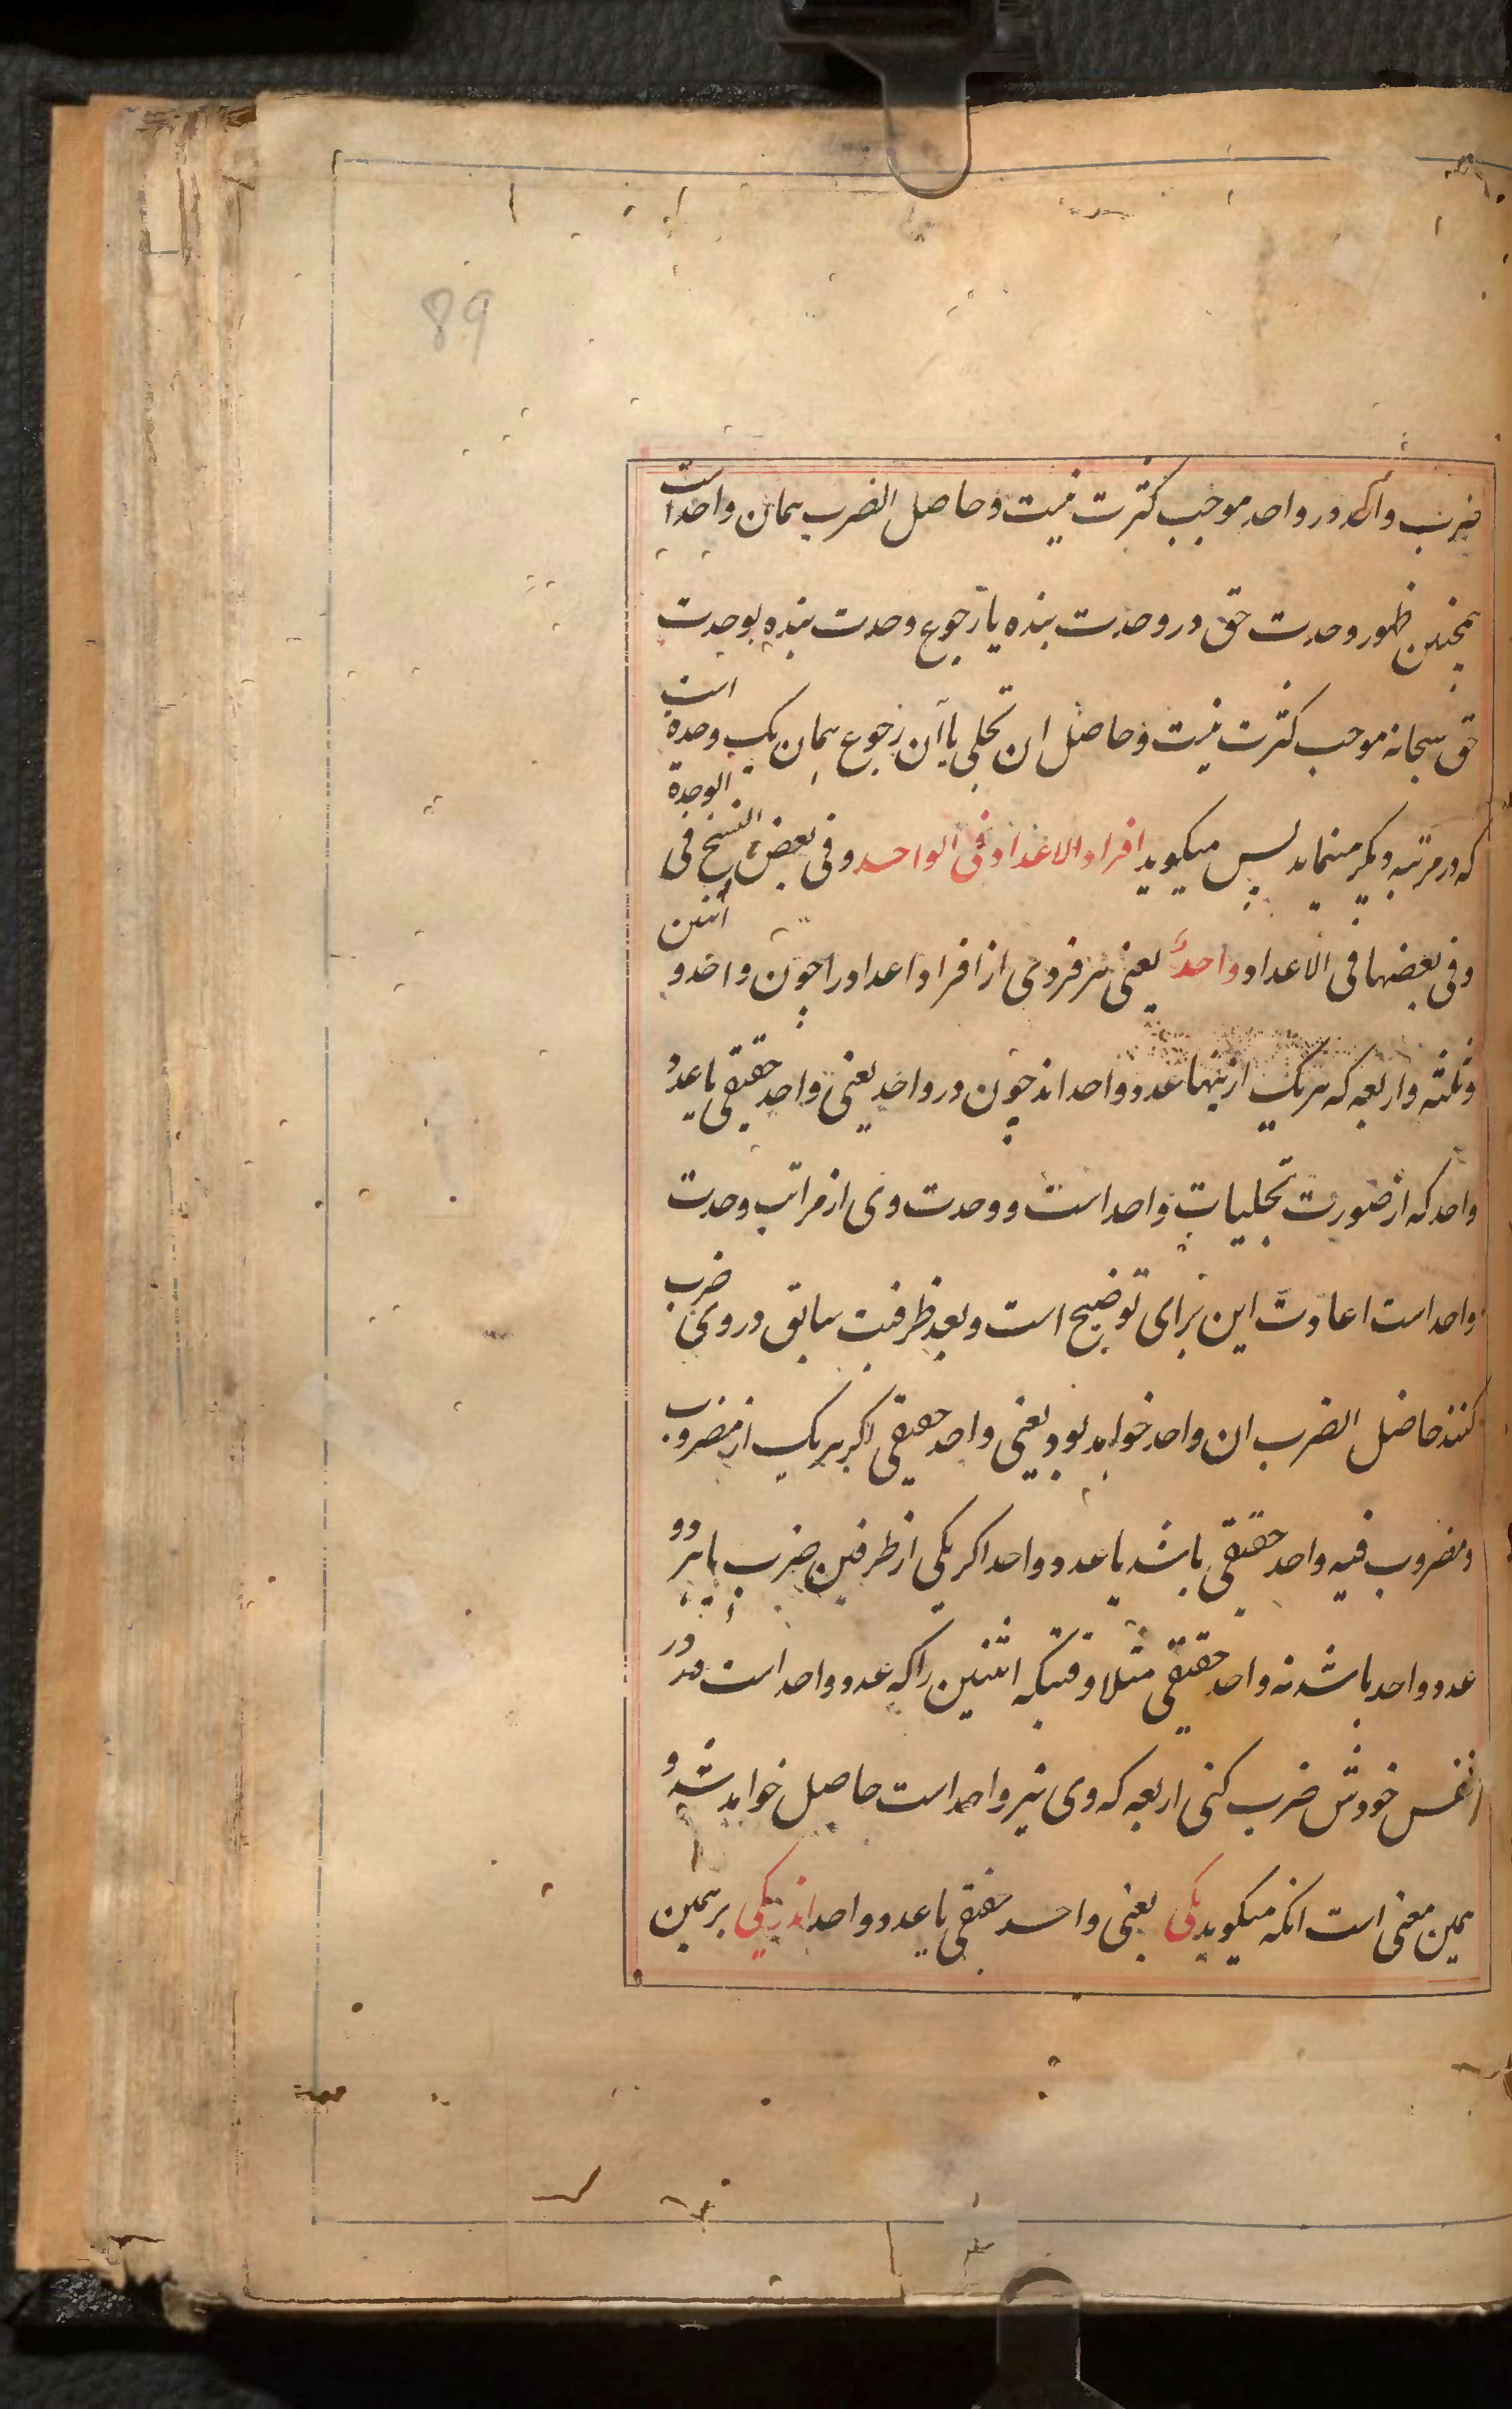 89
ضرب واحد در واحد موجب کثرت نیست و حاصل الضرب همان واحد است
همچنین ظهور وحدت حق در وحدت بنده یا رجوع وحدت بنده بوحدت
حق سبحانه موجب کثرت نیست و حاصل ان تجلی یا آن رجوع همان یک وحدة است
که در مرتبه دیگر مینماید پس میگوید افراد الاعداد فی الواحد و فی بعض النسخ فی الوحدة
و فی بعضها فی الاعداد واحد یعنی هر فردی از افراد اعداد را چون واحد و اثنین
و ثلثه و اربعه که هر یک ازینها عدد واحد اند چون در واحد یعنی واحد حقیقی یا عدد
واحد که از صورت تجلیات واحد است و وحدت وی از مراتب وحدت
واحد است اعادت این برای توضیح است و بعد ظرفیت سابق در وی ضرب
کنند حاصل الضرب ان واحد خواهد بود یعنی واحد حقیقی اگر هر یک از مضروب
و مضروب فیه واحد حقیقی باشد یا عدد واحد اگر یکی از طرفین ضرب یا هر دو
عدد واحد باشد نه واحد حقیقی مثلا وقتیکه اثنین را که عدد واحد است در
نفس خودش ضرب کنی اربعه که وی نیز واحد است حاصل خواهد شد و
همین معنی است انکه میگوید یکی یعنی واحد حقیقی یا عدد واحد اندر یکی بر همین